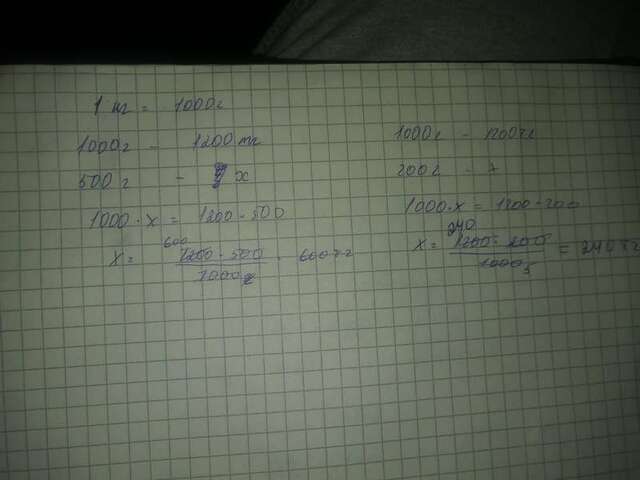 1 кг = 1000г
1000г - 1200 тг
500г - x
1000 · x = 1200 · 500
600
x = 1200 · 500 / 1000 = 600тг
1000г - 1200тг
200г - x
1000 · x = 1200 · 200
240
x = 1200 · 200 / 1000 = 240тг
5